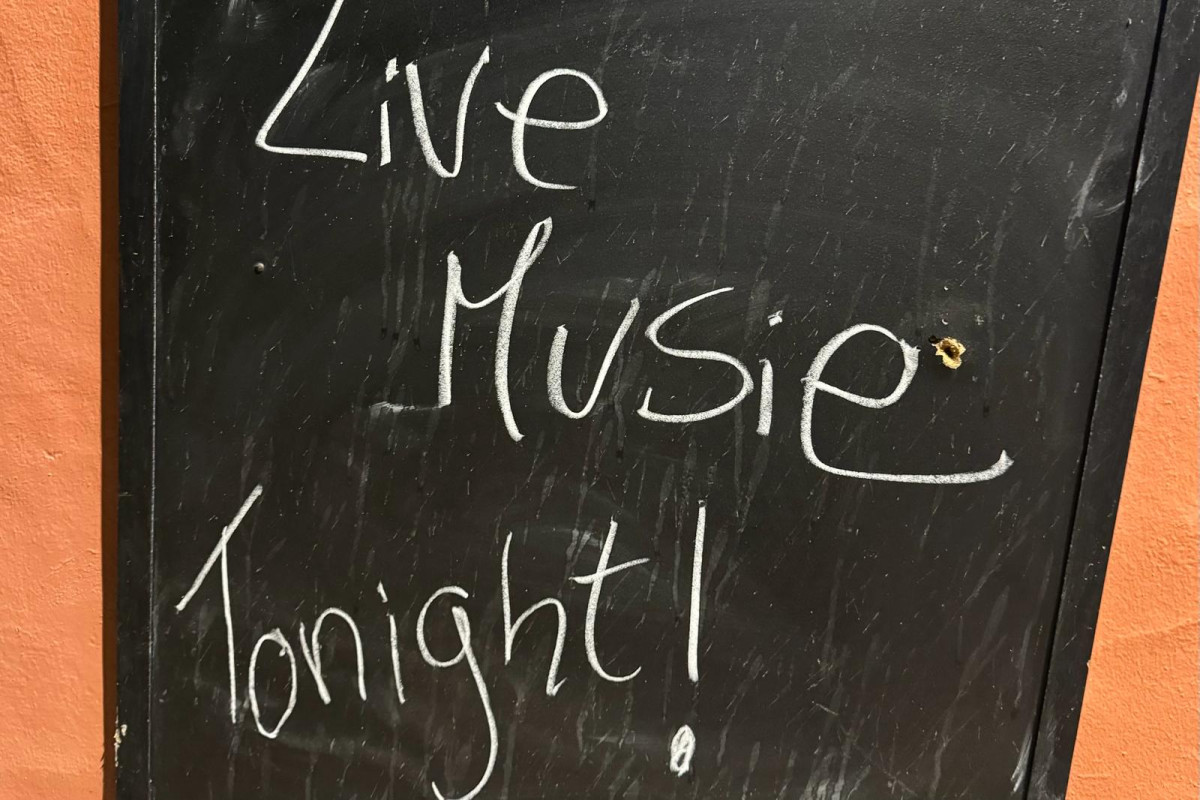 Live
Musie
Tonight!